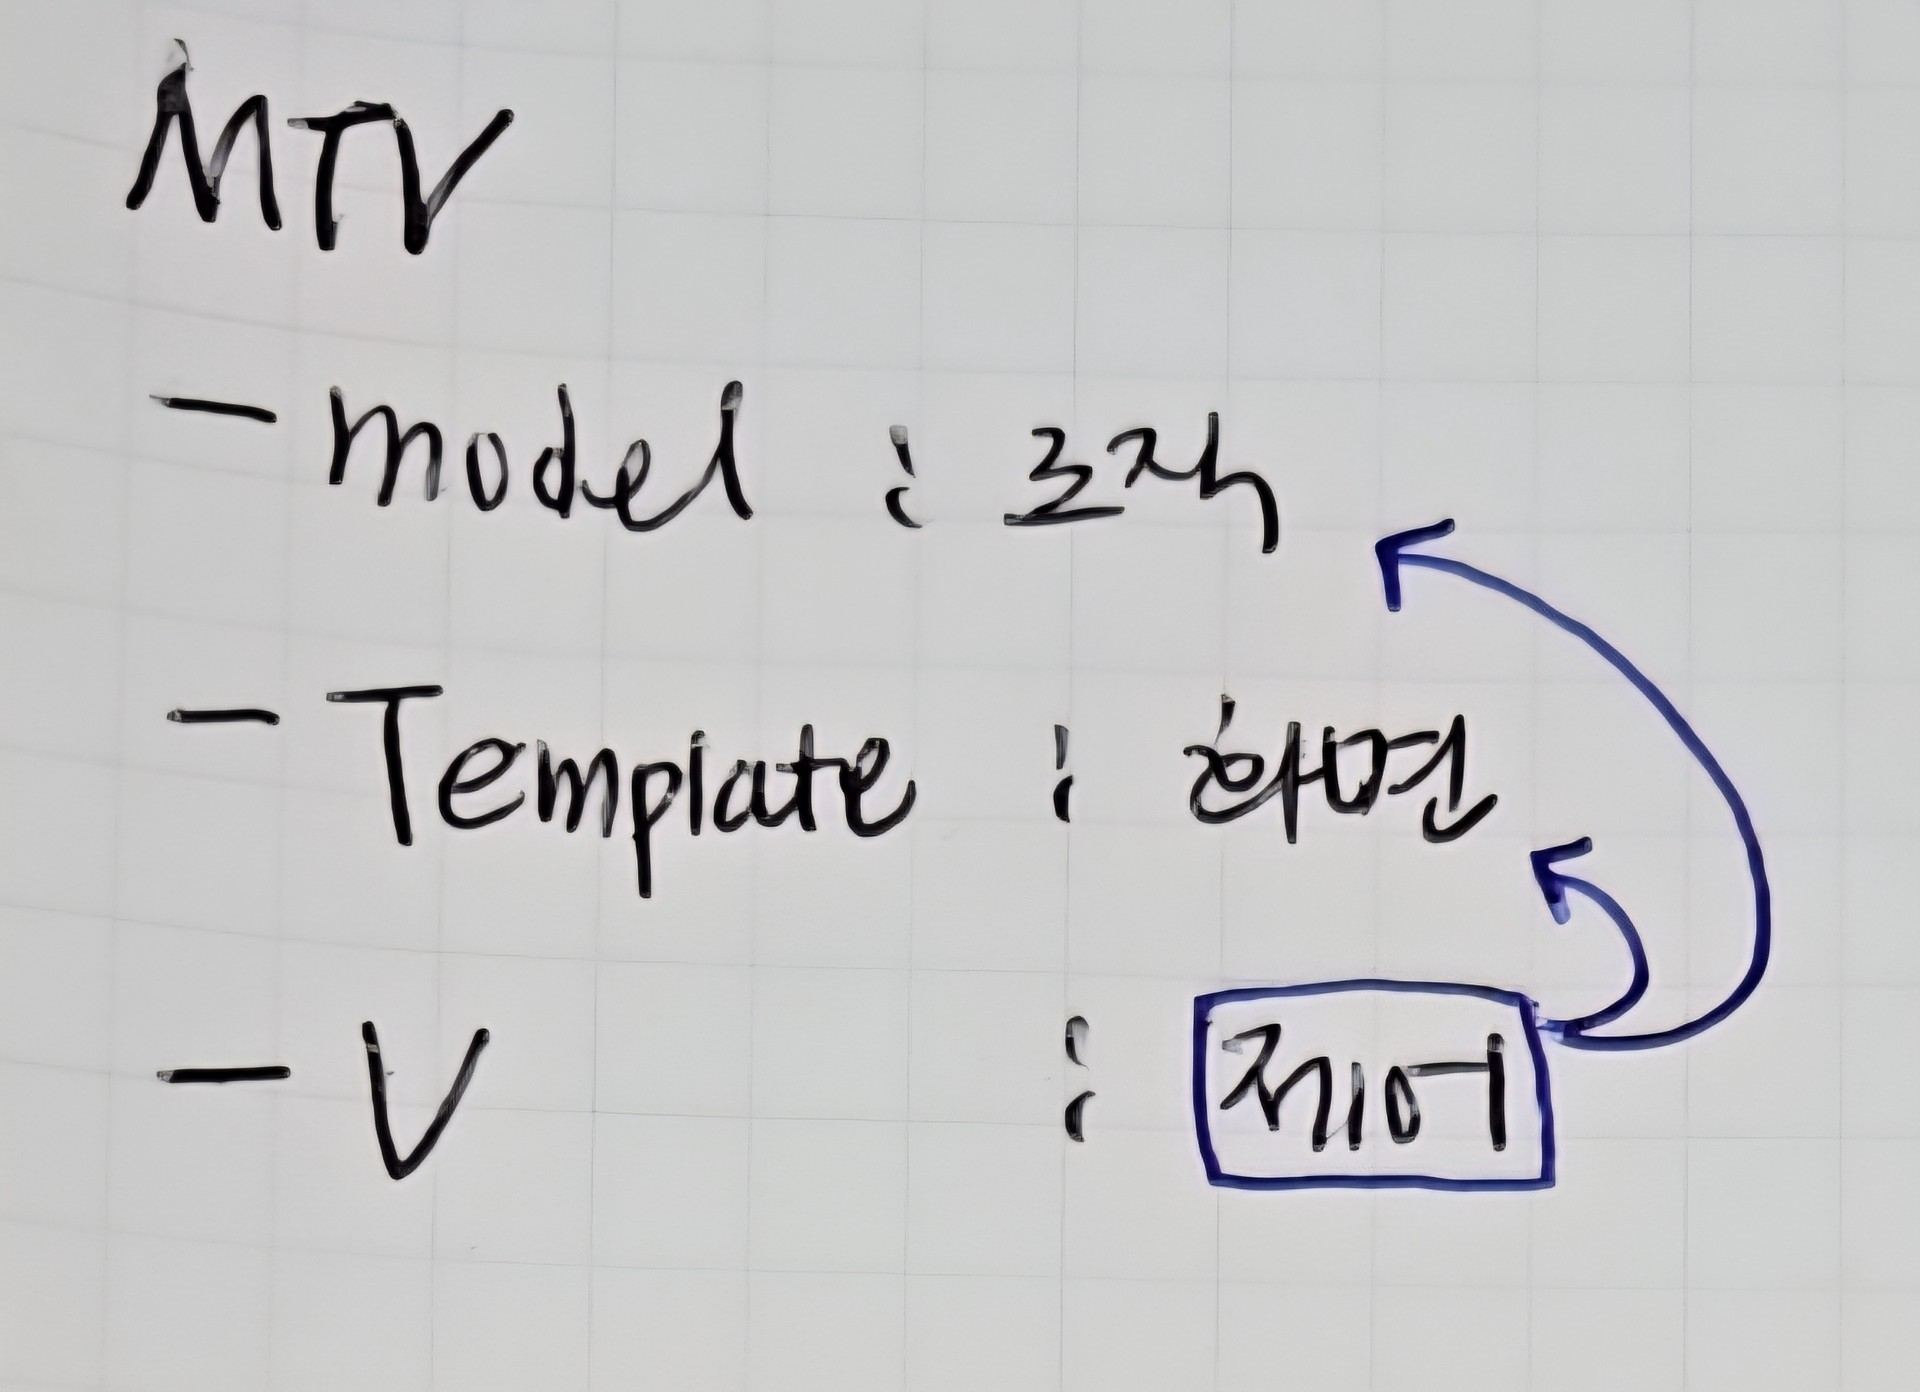 MTV
- model : 로직
- Template : 화면
- V : 제어